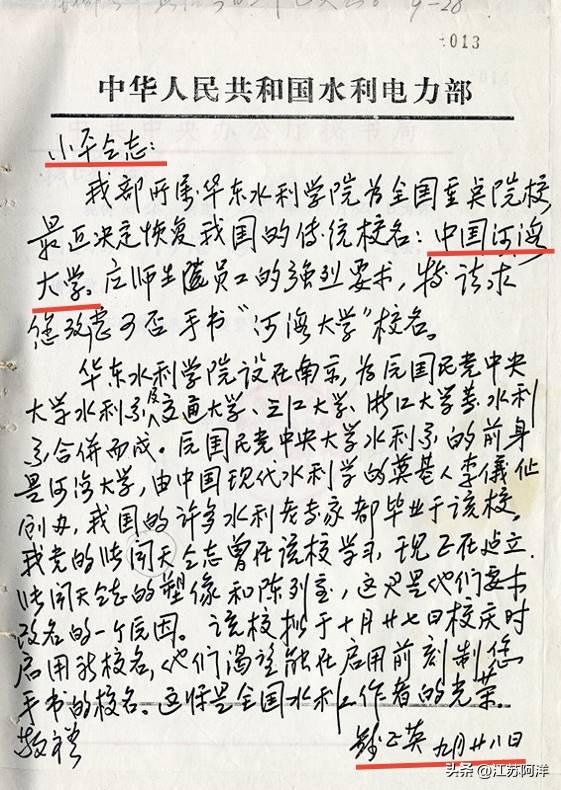 9-28
013
中华人民共和国水利电力部
小平同志:
我部所属华东水利学院为全国重点院校
最近决定恢复我国的传统校名:中国河海
大学。应师生员工的强烈要求,特请求
您考虑可否手书“河海大学”校名。
华东水利学院设在南京,为原国民党中央
大学水利系及交通大学、三江大学、浙江大学等水利
系合併而成。原国民党中央大学水利系的前身
是河海大学,由中国现代水利学的奠基人李儀祉
创办,我国的许多水利老专家都毕业于该校。
我党的张闻天同志曾在该校学习,现正在建立
张闻天同志的塑像和陈列室,这也是他们要求
改名的一个原因。该校拟于十月廿七日校庆时
启用新校名,他们渴望能在启用前刻制您
手书的校名。这将是全国水利工作者的光荣。
敬礼
钱正英 九月廿八日
头条 @江苏阿洋